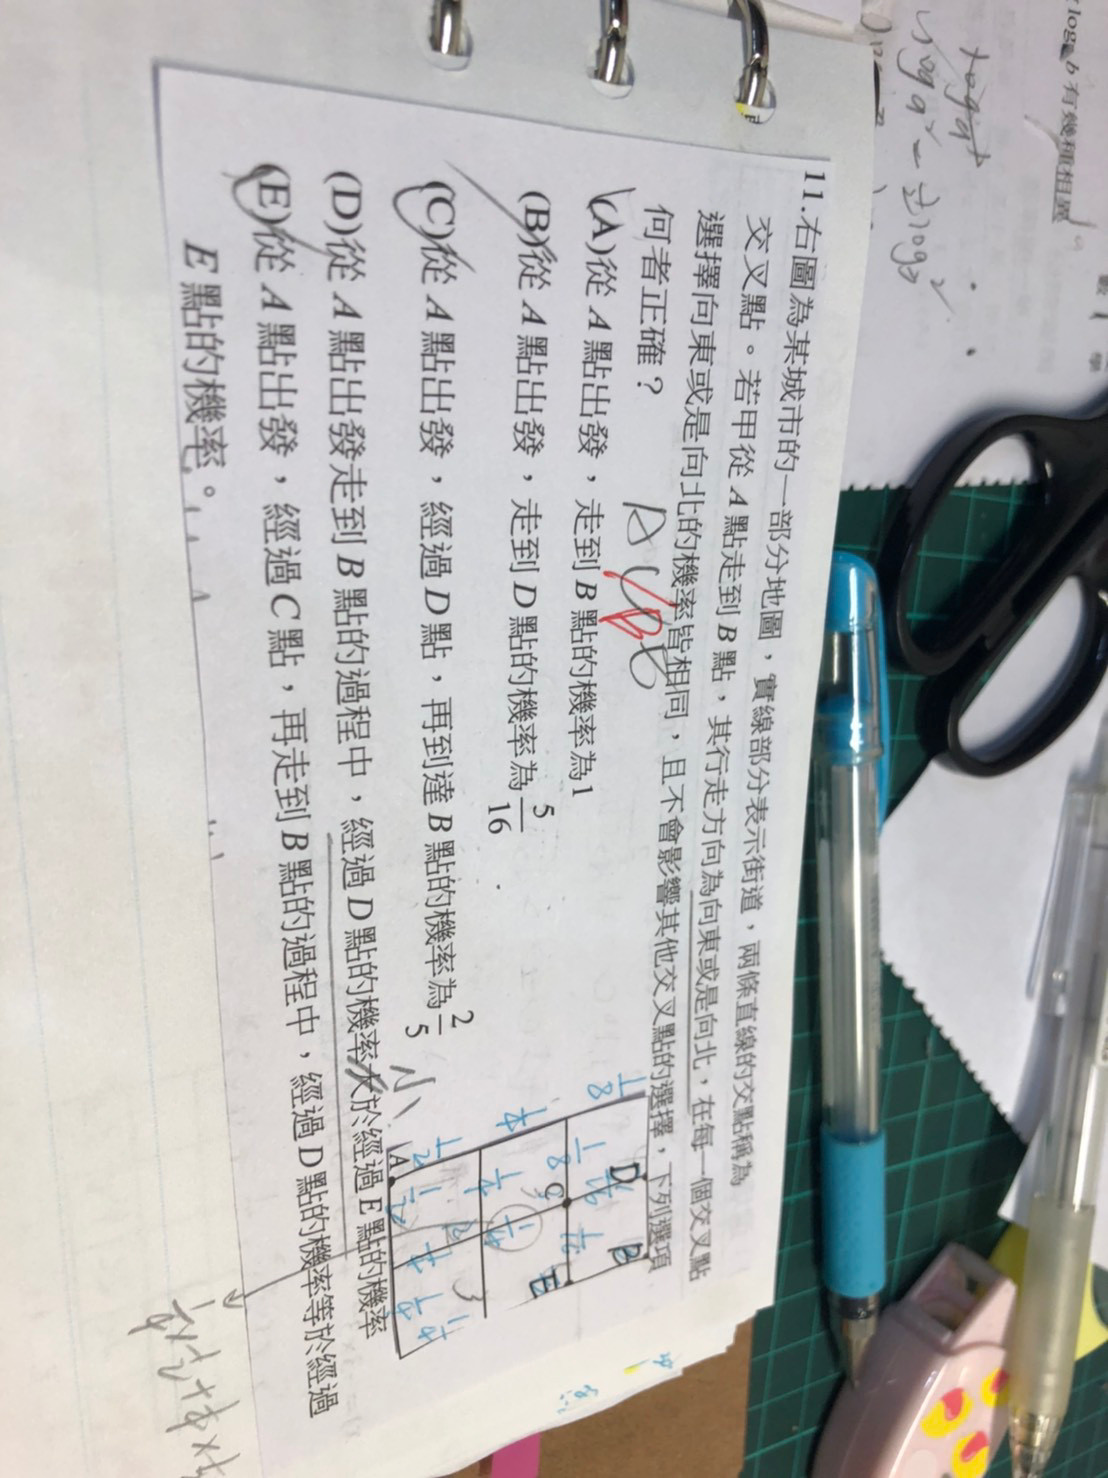 11.右圖為某城市的一部分地圖,實線部分表示街道,兩條直線的交點稱為
交叉點。若甲從 A 點走到 B 點,其行走方向為向東或是向北,在每一個交叉點
選擇向東或是向北的機率皆相同,且不會影響其他交叉點的選擇,下列選項
何者正確?
(A)從 A 點出發,走到 B 點的機率為1
(B)從 A 點出發,走到 D 點的機率為 5/16
(C)從 A 點出發,經過 D 點,再到達 B 點的機率為 2/5
(D)從 A 點出發走到 B 點的過程中,經過 D 點的機率大於經過 E 點的機率
小
(E)從 A 點出發,經過 C 點,再走到 B 點的過程中,經過 D 點的機率等於經過
E 點的機率。
D
B
C
E
A
1/8
1/4
1/8
1/2
1/4
1/4
有幾種相異